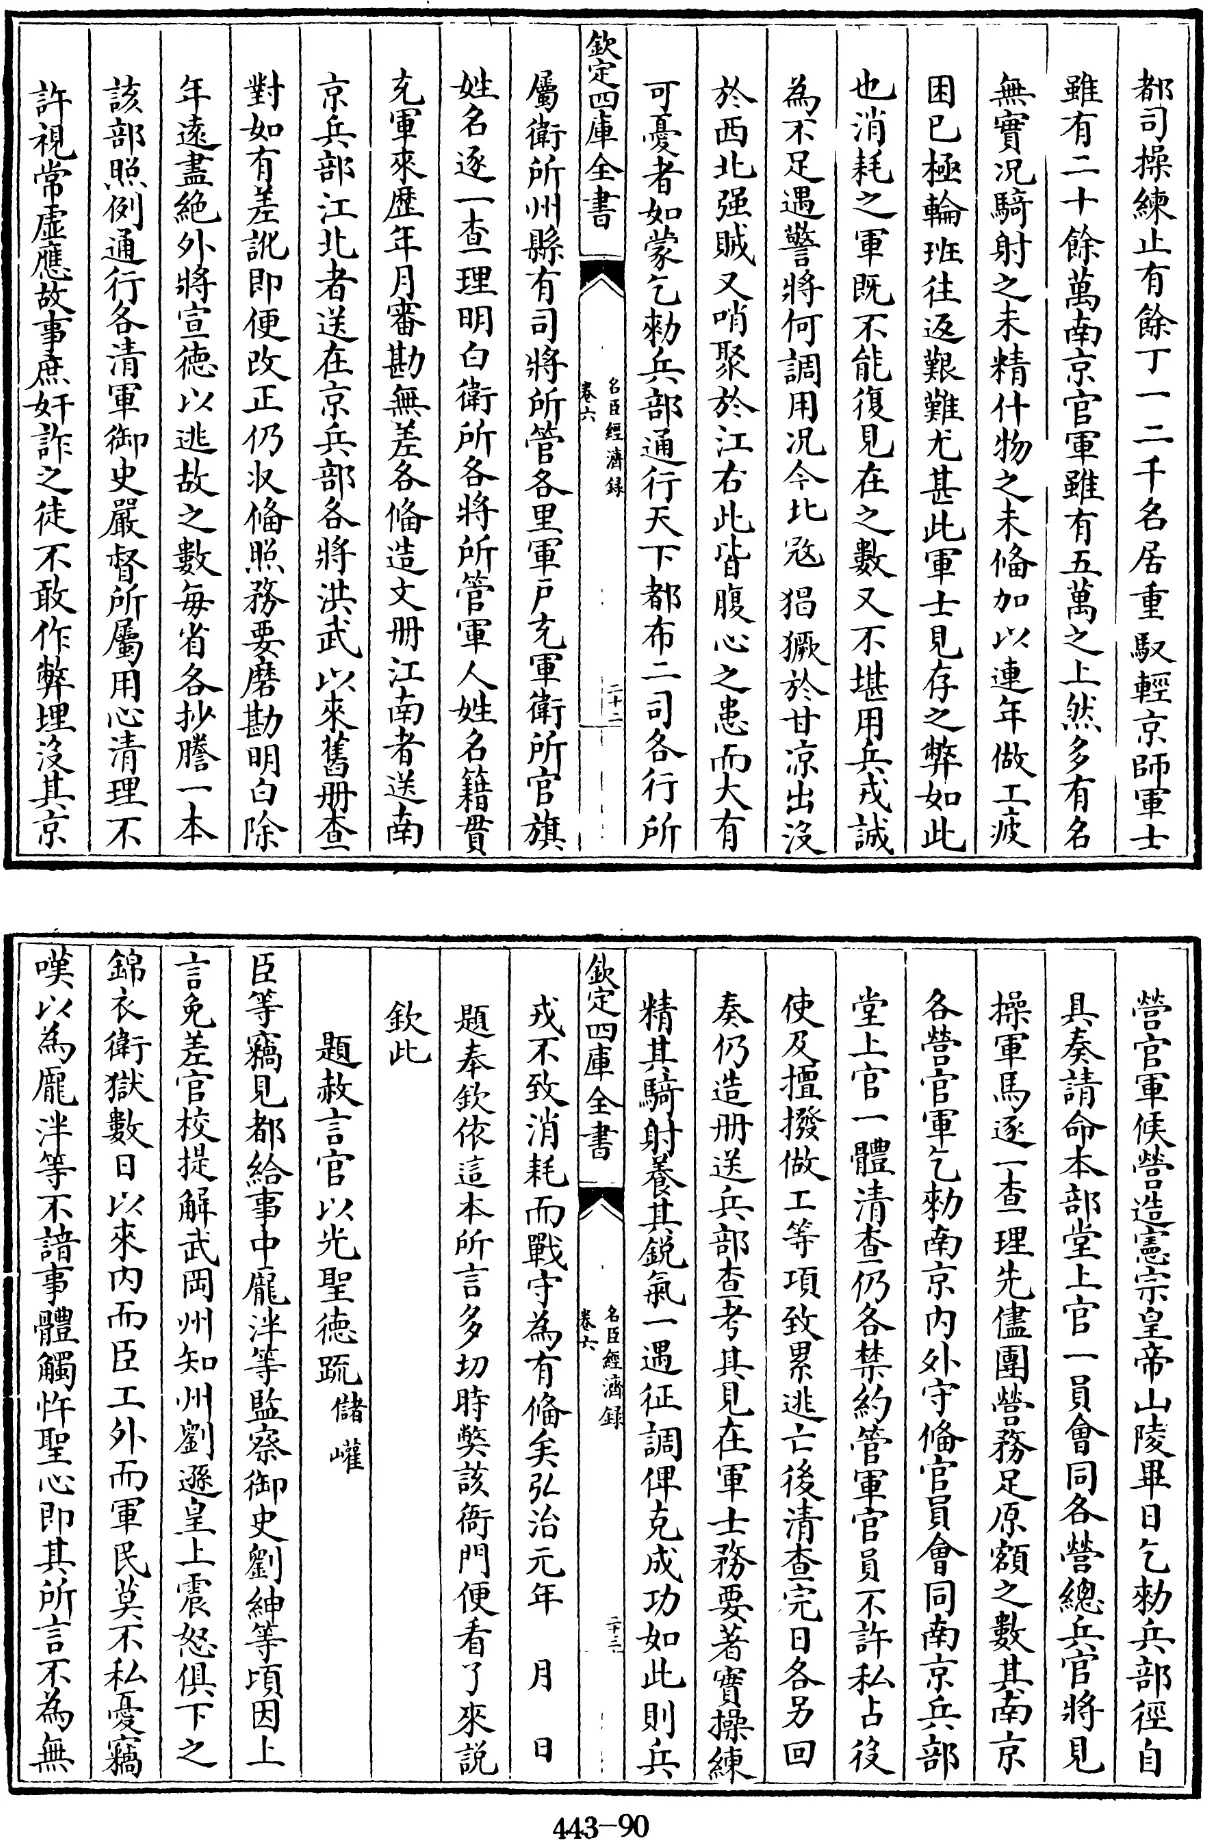 都司操練止有餘丁一二千名居重馭輕京師軍士
雖有二十餘萬南京官軍雖有五萬之上然多有名
無實况騎射之未精什物之未備加以連年做工疲
困已極輪班往返艱難尤甚此軍士見存之弊如此
也消耗之軍既不能復見在之數又不堪用兵戎誠
為不足遇警將何調用况今北宼猖獗於甘凉出沒
於西北强賊又哨聚於江右此皆腹心之患而大有
可憂者如蒙乞勑兵部通行天下都布二司各行所
欽定四庫全書
名臣經濟録
卷六
二十二
屬衛所州縣有司將所管各里軍戸充軍衛所官旗
姓名逐一查理明白衛所各將所管軍人姓名籍貫
充軍來歷年月審勘無差各備造文冊江南者送南
京兵部江北者送在京兵部各將洪武以來舊冊查
對如有差訛即便改正仍收備照務要磨勘明白除
年遠盡絶外將宣德以逃故之數每省各抄謄一本
該部照例通行各清軍御史嚴督所屬用心清理不
許視常虛應故事庶奸詐之徒不敢作弊埋沒其京
營官軍候營造憲宗皇帝山陵畢日乞勑兵部徑自
具奏請命本部堂上官一員會同各營總兵官將見
操軍馬逐一查理先儘團營務足原額之數其南京
各營官軍乞勑南京内外守備官員會同南京兵部
堂上官一體清查仍各禁約管軍官員不許私占役
使及擅撥做工等項致累逃亡後清查完日各另回
奏仍造冊送兵部查考其見在軍士務要著實操練
精其騎射養其鋭氣一遇征調俾克成功如此則兵
欽定四庫全書
名臣經濟録
卷六
二十三
戎不致消耗而戰守為有備矣弘治元年　月　日
題奉欽依這本所言多切時弊該衙門便看了來説
欽此
題赦言官以光聖德疏儲巏
臣等竊見都給事中龎泮等監察御史劉紳等頃因上
言免差官校提解武岡州知州劉遜皇上震怒俱下之
錦衣衛獄數日以來内而臣工外而軍民莫不私憂竊
嘆以為龎泮等不諳事體觸忤聖心即其所言不為無
443-90